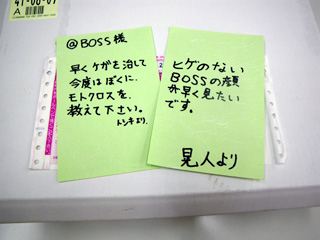 41-00-01
A
@BOSS様
早くケガを治して
今度はぼくに、
モトクロスを、
教えて下さい。
トシキより、
ヒゲのない
BOSSの顔
が早く見たい
です。
晃人より